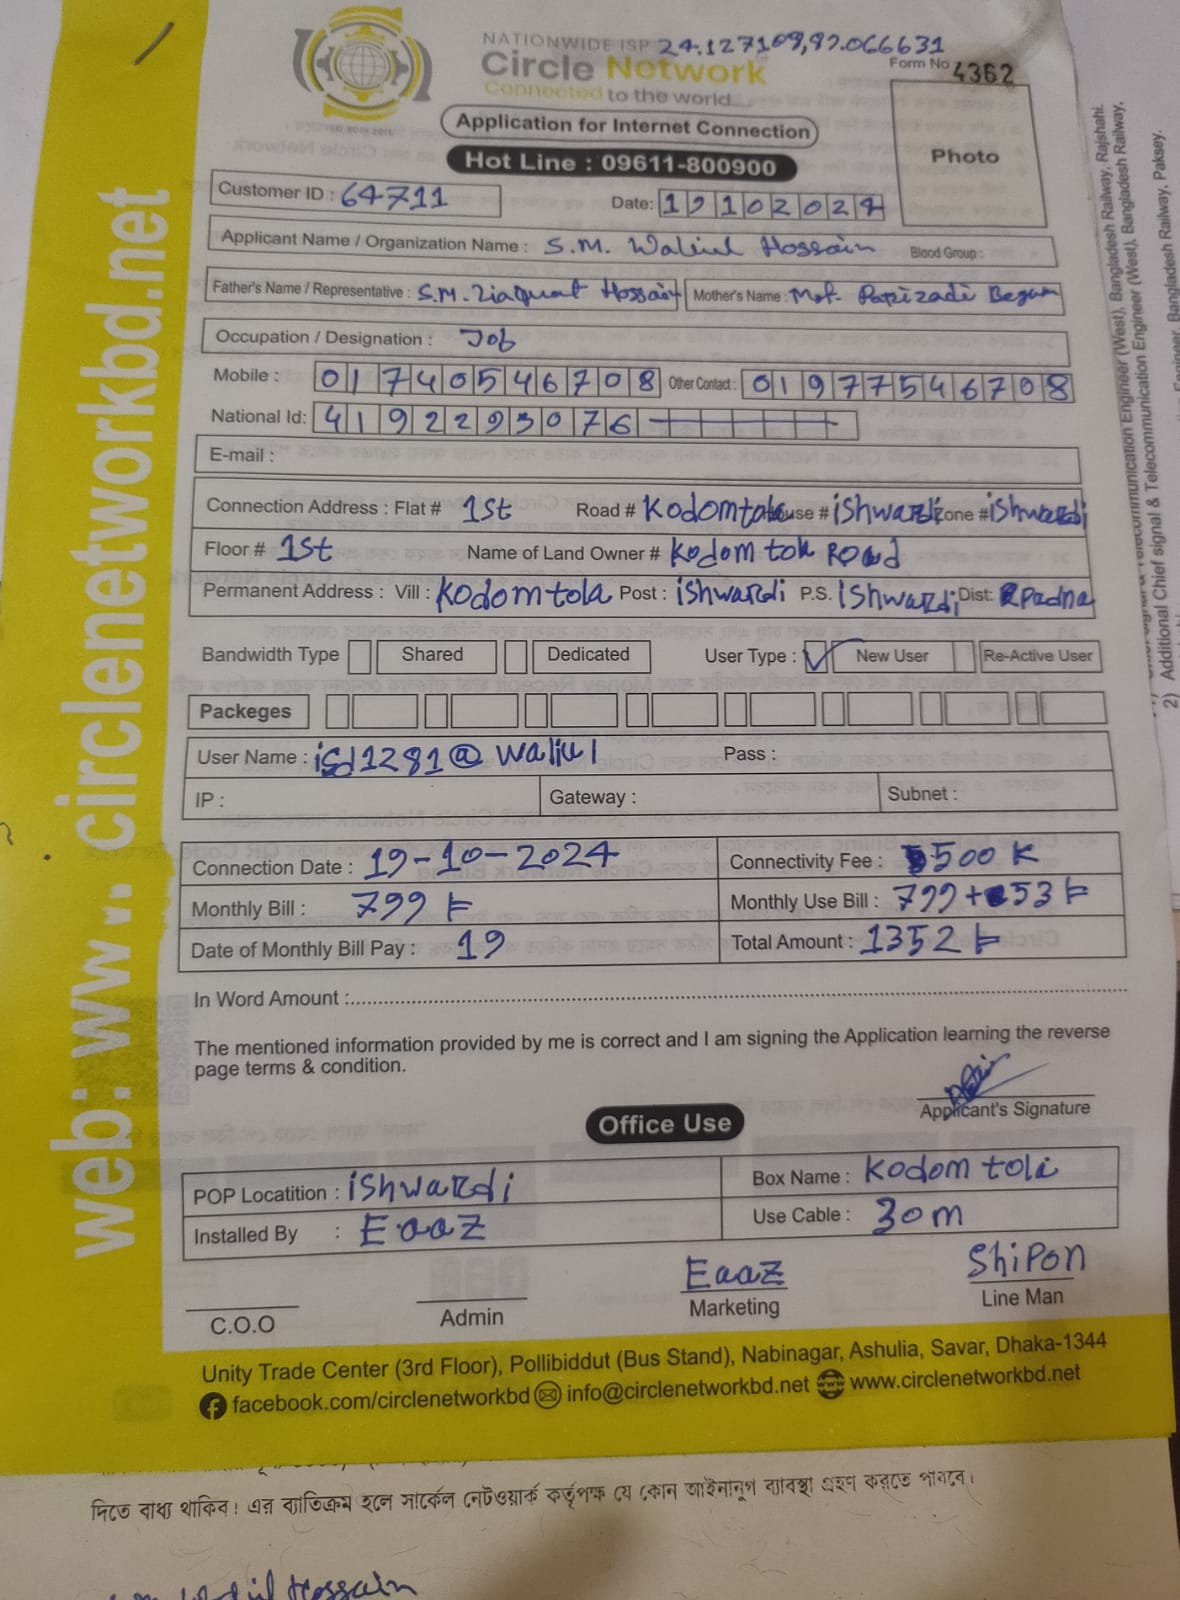 NATIONWIDE ISP 24.127109,89.066631
Circle Network
Connected to the world...
Form No 4362
Photo
Application for Internet Connection
Hot Line : 09611-800900
Customer ID : 64711 Date: 19102024
Applicant Name / Organization Name : S.M. Waliul Hossain Blood Group :
Father's Name / Representative : S.M. Liaquat Hossain Mother's Name : Mst. Parizadi Begum
Occupation / Designation : Job
Mobile : 01740546708 Other Contact : 01977546708
National Id: 4192293076
E-mail :
Connection Address : Flat # 1st Road # Kodomtola House # ishwardi Zone # ishwardi
Floor # 1st Name of Land Owner # Kodom tola Road
Permanent Address : Vill : Kodomtola Post : ishwardi P.S. ishwardi Dist: Padna
Bandwidth Type Shared Dedicated User Type : New User Re-Active User
Packeges
User Name : isd1281@waliul Pass :
IP : Gateway : Subnet :
Connection Date : 19-10-2024 Connectivity Fee : 500
Monthly Bill : 799 Monthly Use Bill : 799+53
Date of Monthly Bill Pay : 19 Total Amount : 1352
In Word Amount :
The mentioned information provided by me is correct and I am signing the Application learning the reverse
page terms & condition.
Applicant's Signature
Office Use
POP Locatition : ishwardi Box Name : Kodom tola
Installed By : Eaaz Use Cable : 30m
Eaaz Shipon
C.O.O Admin Marketing Line Man
Unity Trade Center (3rd Floor), Pollibiddut (Bus Stand), Nabinagar, Ashulia, Savar, Dhaka-1344
facebook.com/circlenetworkbd info@circlenetworkbd.net www.circlenetworkbd.net
web: www.circlenetworkbd.net
দিতে বাধ্য থাকিব। এর ব্যাতিক্রম হলে সার্কেল নেটওয়ার্ক কর্তৃপক্ষ যে কোন আইনানুগ ব্যাবস্থা গ্রহণ করতে পারবে।
Hossain
Engineer (West), Bangladesh Railway, Rajshahi.
& Telecommunication Engineer (West), Bangladesh Railway,
2) Additional Chief signal & Telecommunication Engineer (West), Bangladesh Railway,
Engineer, Bangladesh Railway, Paksey.